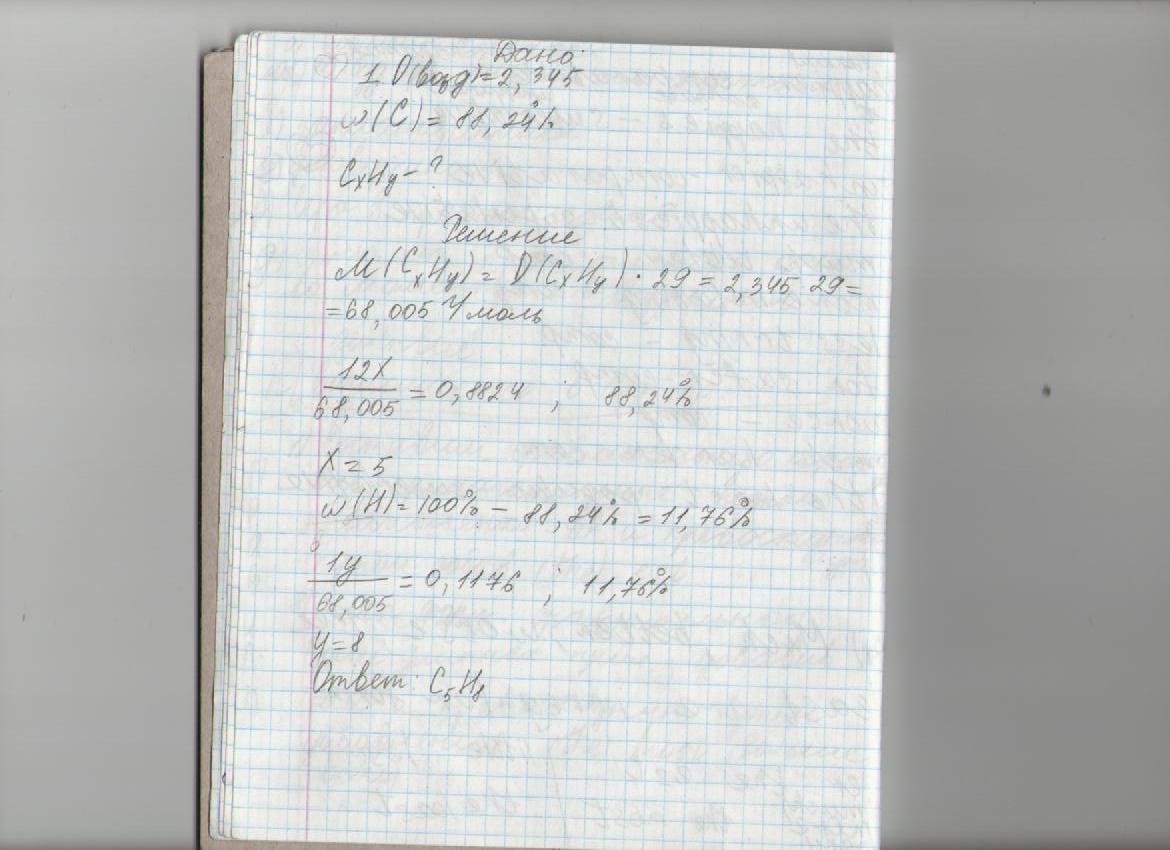 Дано:
1. D(возд)=2,345
w(C) = 88,24%
CxHy - ?
Решение
M(CxHy) = D(CxHy) · 29 = 2,345 29 =
=68,005 г/моль
12x/68,005 = 0,8824 ; 88,24%
x = 5
w(H) = 100% - 88,24% = 11,76%
1y/68,005 = 0,1176 ; 11,76%
y=8
Ответ: C5H8